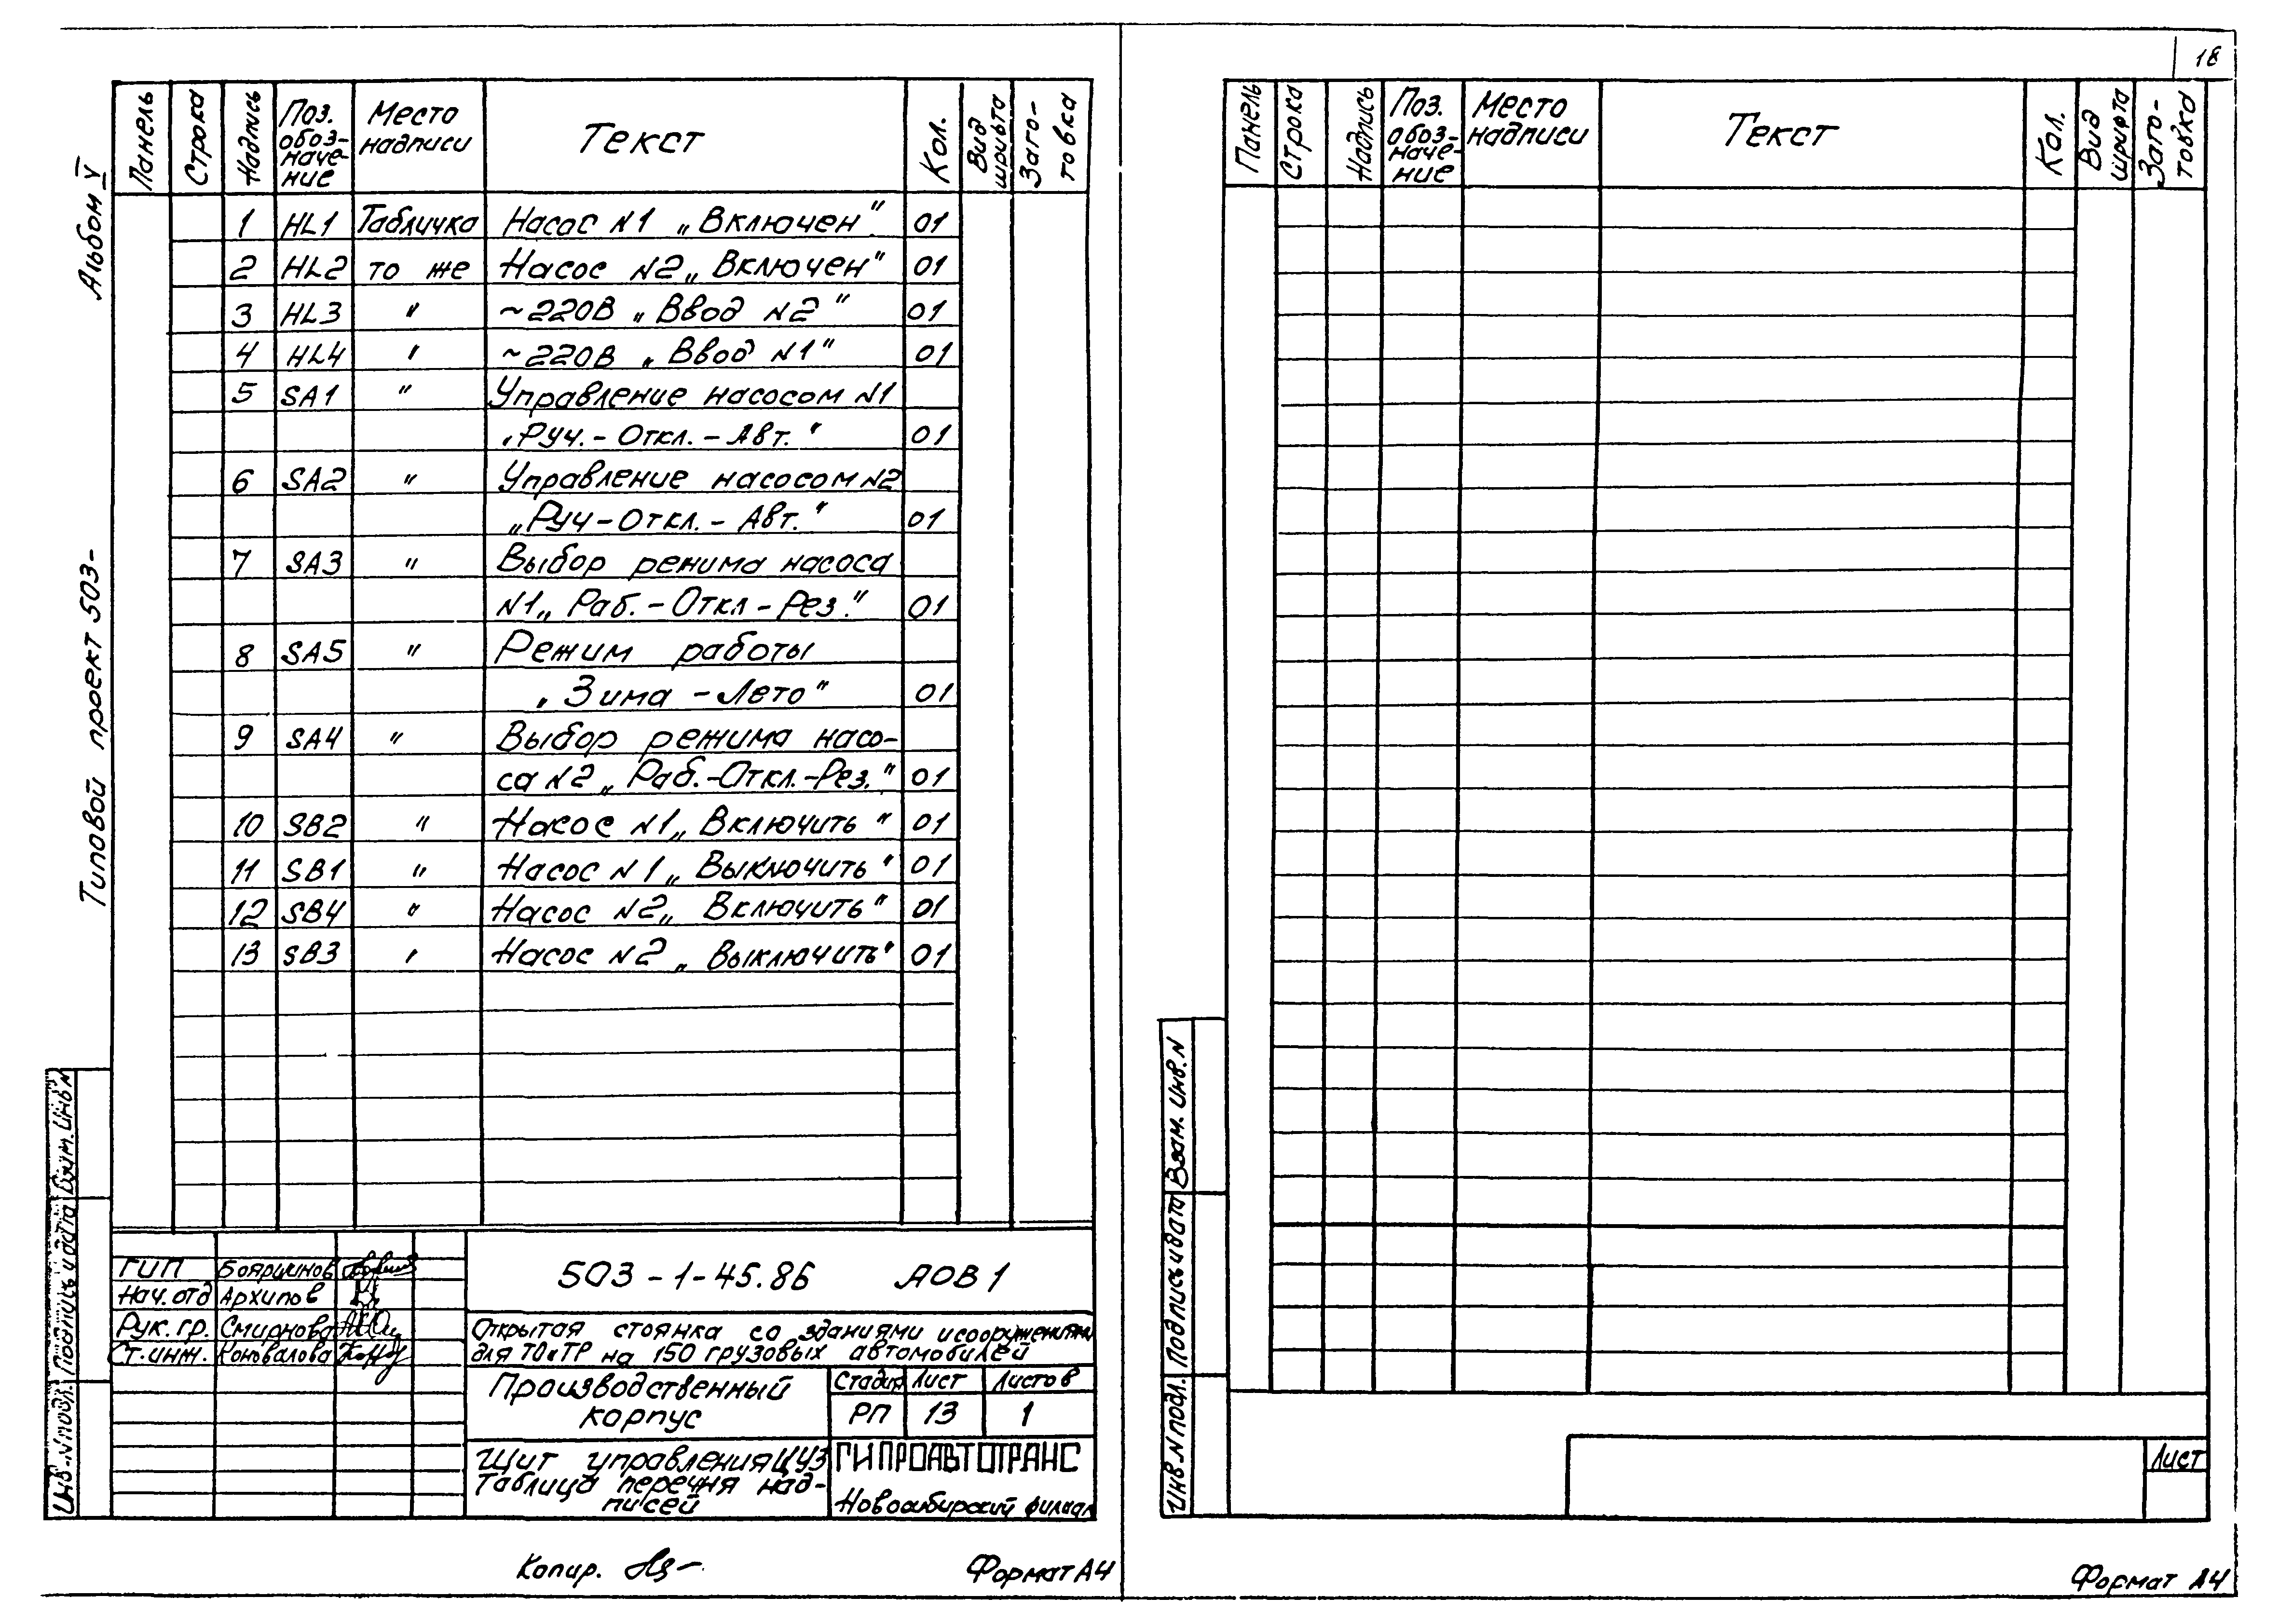 18
Альбом V
Типовой проект 503-
Панель Строка Надпись Поз. обоз- наче- ние Место надписи Текст Кол. Вид шрифта Заго- товка
1 HL1 Табличка Насос N1 „Включен" 01
2 HL2 то же Насос N2 „Включен" 01
3 HL3 " ~220В „Ввод N2" 01
4 HL4 " ~220В „Ввод N1" 01
5 SA1 " Управление насосом N1
„Руч.-Откл.-Авт." 01
6 SA2 " Управление насосом N2
„Руч-Откл.-Авт." 01
7 SA3 " Выбор режима насоса
N1 „Раб.-Откл-Рез." 01
8 SA5 " Режим работы
„Зима-Лето" 01
9 SA4 " Выбор режима насо-
са N2 „Раб.-Откл.-Рез." 01
10 SB2 " Насос N1 „Включить" 01
11 SB1 " Насос N1 „Выключить" 01
12 SB4 " Насос N2 „Включить" 01
13 SB3 " Насос N2 „Выключить" 01
ГИП Бояршинов
Нач. отд Архипов
Рук. гр. Смирнова
Ст. инж. Коновалова
503-1-45.86 АОВ1
Открытая стоянка со зданиями и сооружениями
для ТО и ТР на 150 грузовых автомобилей
Производственный
корпус
Стадия Лист Листов
РП 13 1
Щит управления ЩУ3
Таблица перечня над-
писей
ГИПРОАВТОТРАНС
Новосибирский филиал
Инв. N подл. Подпись и дата Взам. Инв N
Копир.
Формат А4
Панель Строка Надпись Поз. обоз- наче- ние Место надписи Текст Кол. Вид шрифта Заго- товка
Инв N подл. Подпись и дата Взам. инв. N
Лист
Формат А4